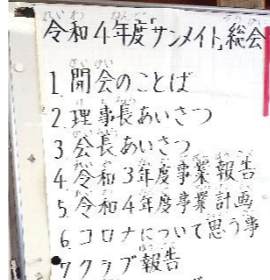 令和4年度「サンメイト」総会
1.開会のことば
2.理事長あいさつ
3.会長あいさつ
4.令和3年度事業報告
5.令和4年度事業計画
6.コロナについて思う事
7.クラブ報告